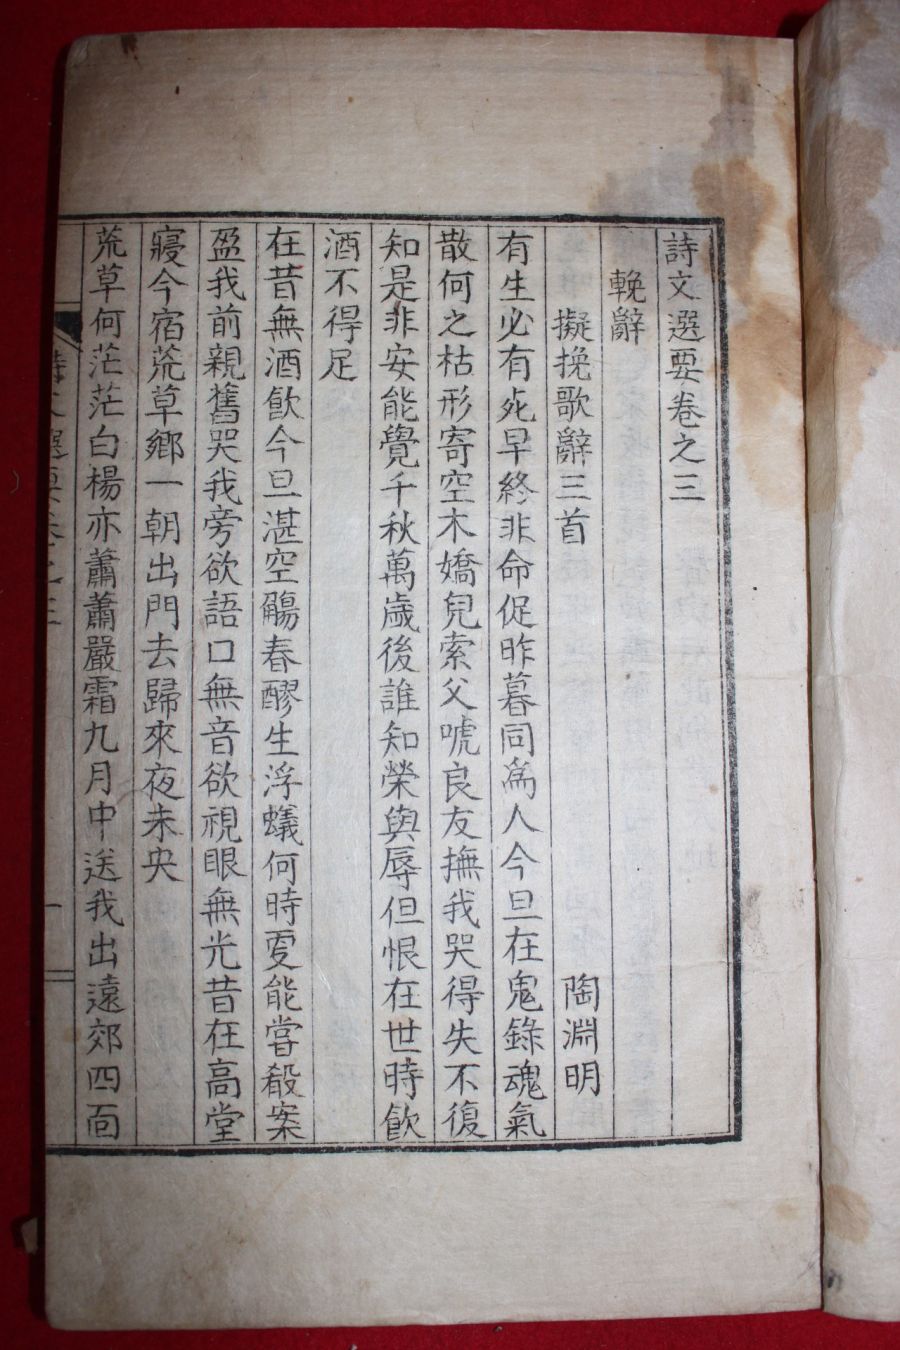 詩文選要卷之三
輓辭
擬挽歌辭三首 陶淵明
有生必有死早終非命促昨暮同爲人今旦在鬼錄魂氣
散何之枯形寄空木嬌兒索父唬良友撫我哭得失不復
知是非安能覺千秋萬歲後誰知榮與辱但恨在世時飮
酒不得足
在昔無酒飮今旦湛空觴春醪生浮蟻何時更能嘗殽案
盈我前親舊哭我旁欲語口無音欲視眼無光昔在高堂
寢今宿荒草鄉一朝出門去歸來夜未央
荒草何茫茫白楊亦蕭蕭嚴霜九月中送我出遠郊四面
詩文選要卷之三
一